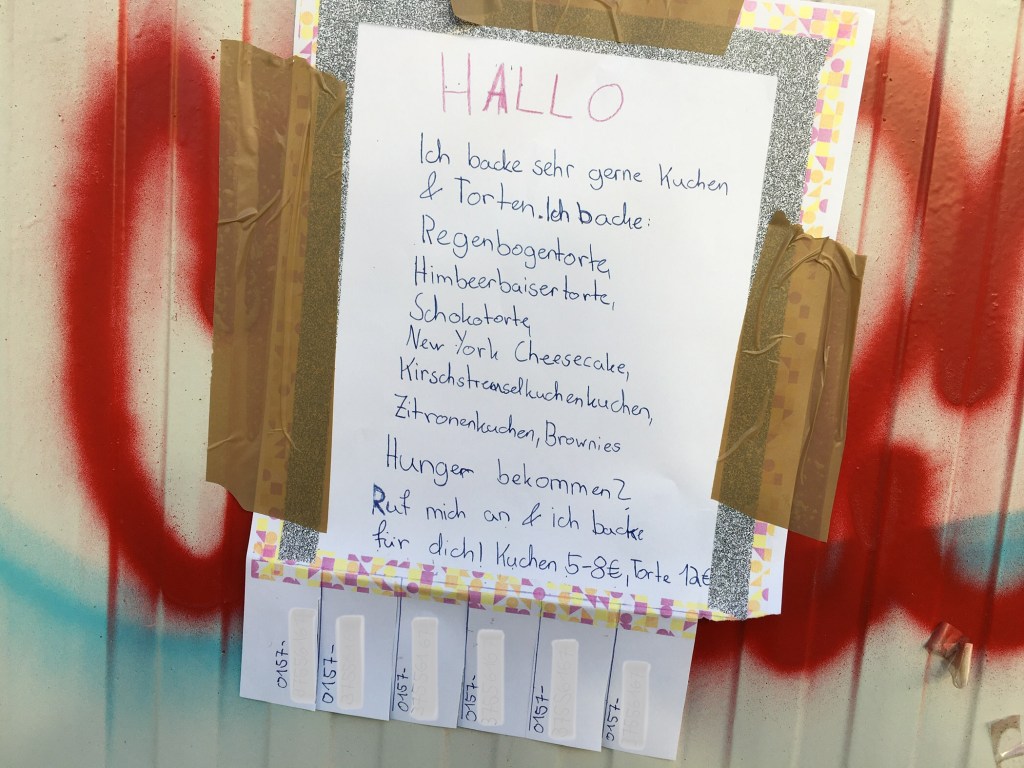 HALLO
Ich backe sehr gerne Kuchen
& Torten. Ich backe:
Regenbogentorte,
Himbeerbaisertorte,
Schokotorte,
New York Cheesecake,
Kirschstreuselkuchenkuchen,
Zitronenkuchen, Brownies
Hunger bekommen?
Ruf mich an & ich backe
für dich! Kuchen 5-8€, Torte 12€
0157-
0157-
0157-
0157-
0157-
0157-